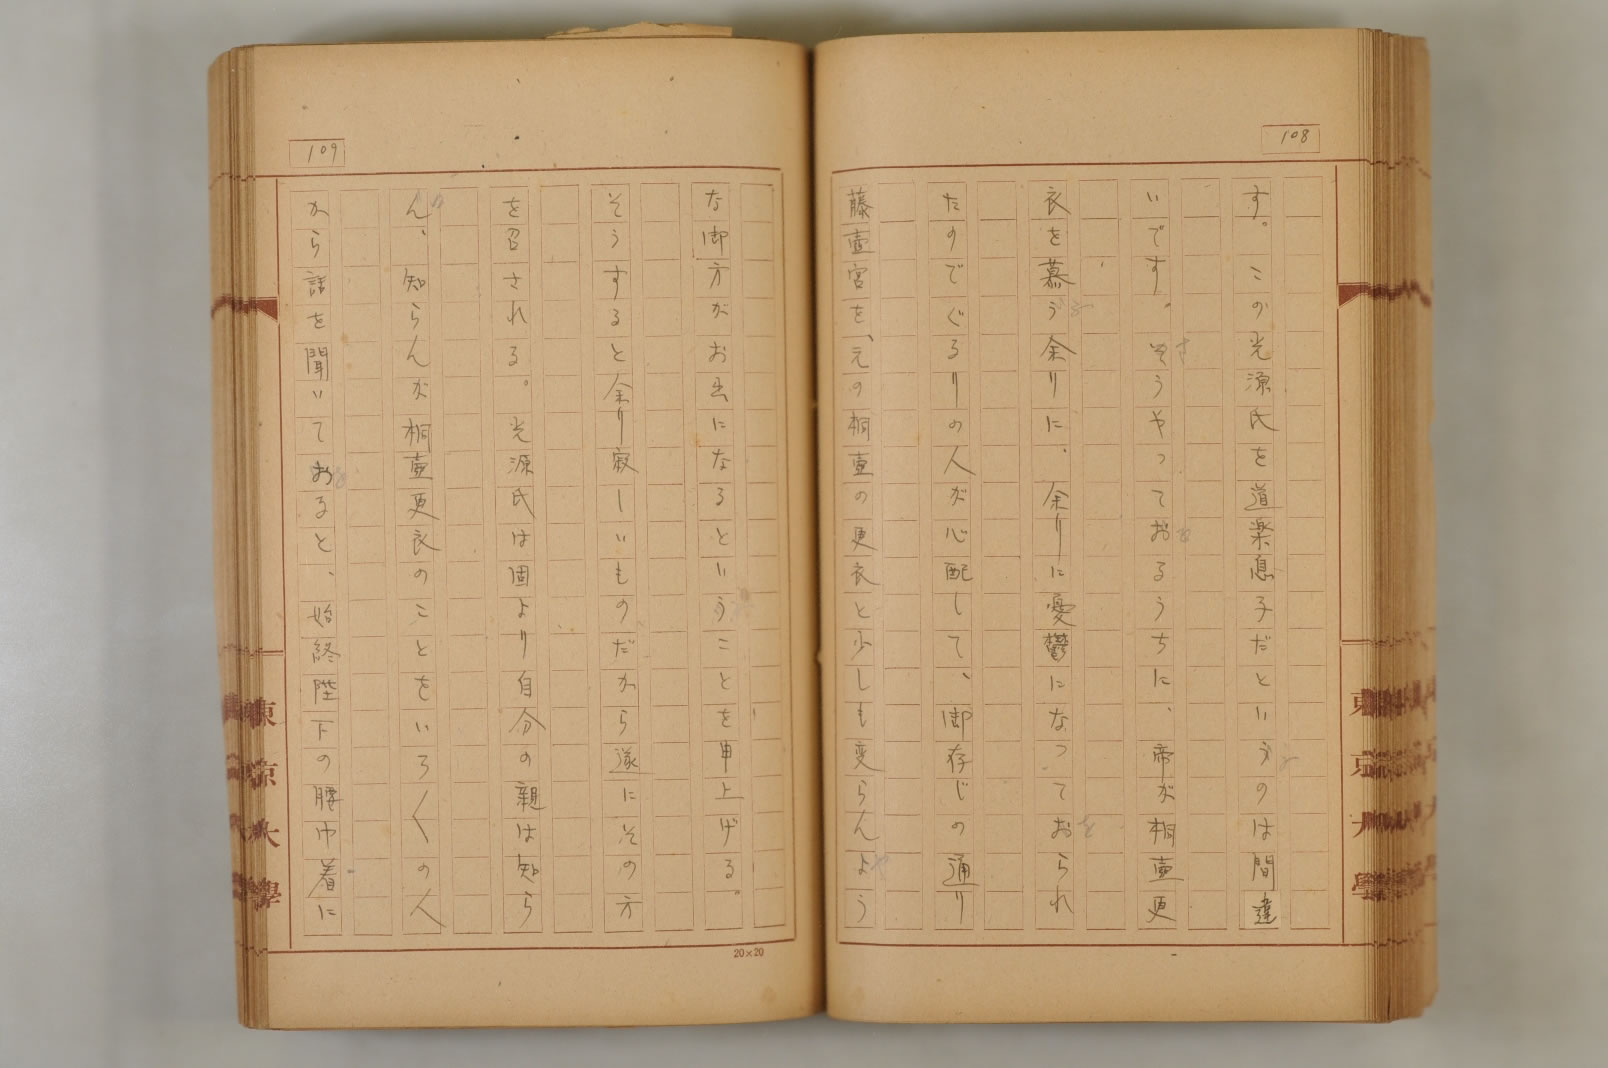 108
す。この光源氏を道楽息子だというのは間違
いです。そうやっておるうちに、帝が桐壷更
衣を慕う余りに、余りに憂鬱になっておられ
たのでぐるりの人が心配して、御存じの通り
藤壷宮を、元の桐壷の更衣と少しも変らんよう
109
な御方がお出になるということを申上げる。
そうすると余り寂しいものだから遂にその方
を召される。光源氏は固より自分の親は知ら
ん、知らんが桐壷更衣のことをいろ〱の人
から話を聞いておると、始終陛下の腰巾着に
20×20
東京大學